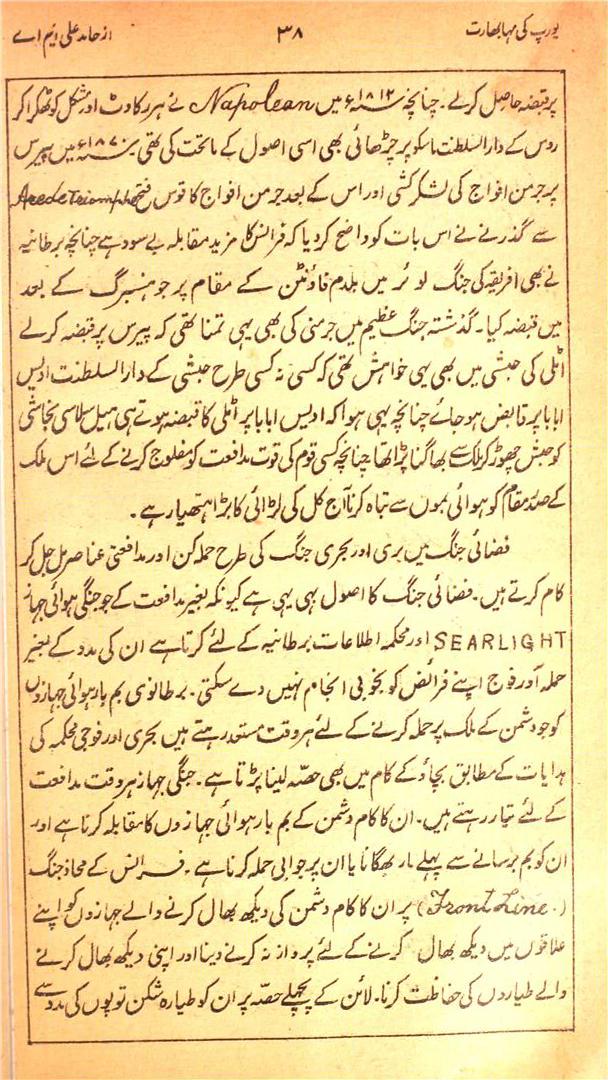 یورپ کی مہابھارت ۳۸ از حامد علی ایم اے
پر قبضہ حاصل کرلے۔ چنانچہ ۱۸۱۲ء میں Napolean نے ہر رکاوٹ اور مشکل کو ٹھکرا کر
روس کے دارالسلطنت ماسکو پر چڑھائی بھی اسی اصول کے ماتحت کی تھی ۱۸۷۰ء میں پیرس
پر جرمن افواج کی لشکر کشی اور اس کے بعد جرمن افواج کا قوس فتح
سے گذرنے نے اس بات کو واضح کردیا کہ فرانس کا مزید مقابلہ بے سود ہے چنانچہ برطانیہ
نے بھی افریقہ کی جنگ لوئر میں بلدم فاؤنٹن کے مقام پر جوہنسبرگ کے بعد
میں قبضہ کیا۔ گذشتہ جنگ عظیم میں جرمنی کی بھی یہی تمنا تھی کہ پیرس پر قبضہ کرلے
اٹلی کی حبشی میں بھی یہی خواہش تھی کہ کسی نہ کسی طرح حبشی کے دارالسلطنت ادیس
ابابا پر قابض ہوجائے چنانچہ یہی ہوا کہ ادیس ابابا پر اٹلی کا قبضہ ہوتے ہی ہیل سلاسی نجاشی
کو حبش چھوڑ کر ملک سے بھاگنا پڑا تھا چنانچہ کسی قوم کی قوت مدافعت کو مفلوج کرنے کے لئے اس ملک
کے صدر مقام کو ہوائی بموں سے تباہ کرنا آج کل کی لڑائی کا بڑا ہتھیار ہے۔
فضائی جنگ میں بری اور بحری جنگ کی طرح حملہ کن اور مدافعتی عناصر مل جل کر
کام کرتے ہیں۔ فضائی جنگ کا اصول یہی یہی ہے کیونکہ بغیر مدافعت کے جو جنگی ہوائی جہاز
SEARLIGHT اور محکمہ اطلاعات برطانیہ کے لئے کرتا ہے ان کی مدد کے بغیر
حملہ آور فوج اپنے فرائض کو بخوبی انجام نہیں دے سکتی۔ برطانوی بم بار ہوائی جہازوں
کو جو دشمن کے ملک پر حملہ کرنے کے لئے ہر وقت مستعد رہتے ہیں بحری اور فوجی محکمہ کی
ہدایات کے مطابق بچاؤ کے کام میں بھی حصّہ لینا پڑتا ہے۔ جنگی جہاز ہر وقت مدافعت
کے لئے تیار رہتے ہیں۔ ان کا کام دشمن کے بم بار ہوائی جہازوں کا مقابلہ کرنا ہے اور
ان کو بم برسانے سے پہلے مار بھگانا یا ان پر جوابی حملہ کرنا ہے۔ فرانس کے محاذ جنگ
(Front Line.) پر ان کا کام دشمن کی دیکھ بھال کرنے والے جہازوں کو اپنے
علاقوں میں دیکھ بھال کرنے کے لئے پرواز نہ کرنے دینا اور اپنی دیکھ بھال کرنے
والے طیاروں کی حفاظت کرنا۔ لائن کے پچھلے حصّہ پر ان کو طیارہ شکن توپوں کی مدد سے